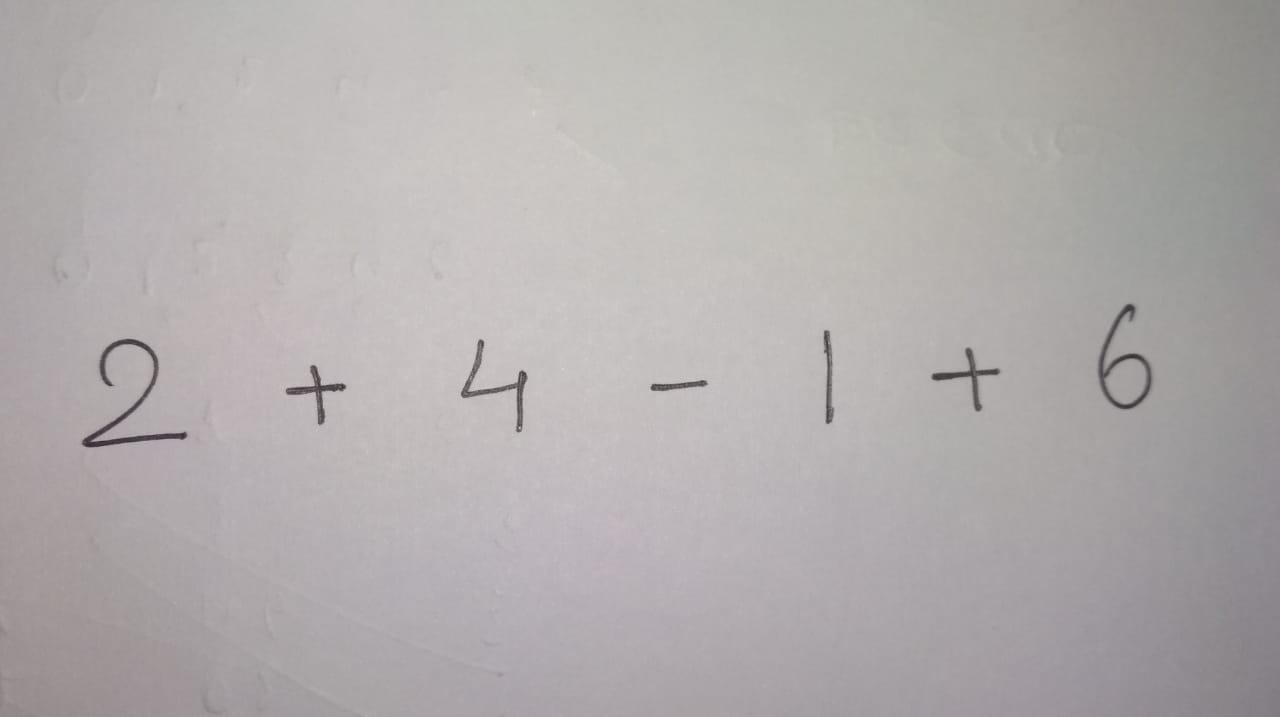 2 + 4 - 1 + 6